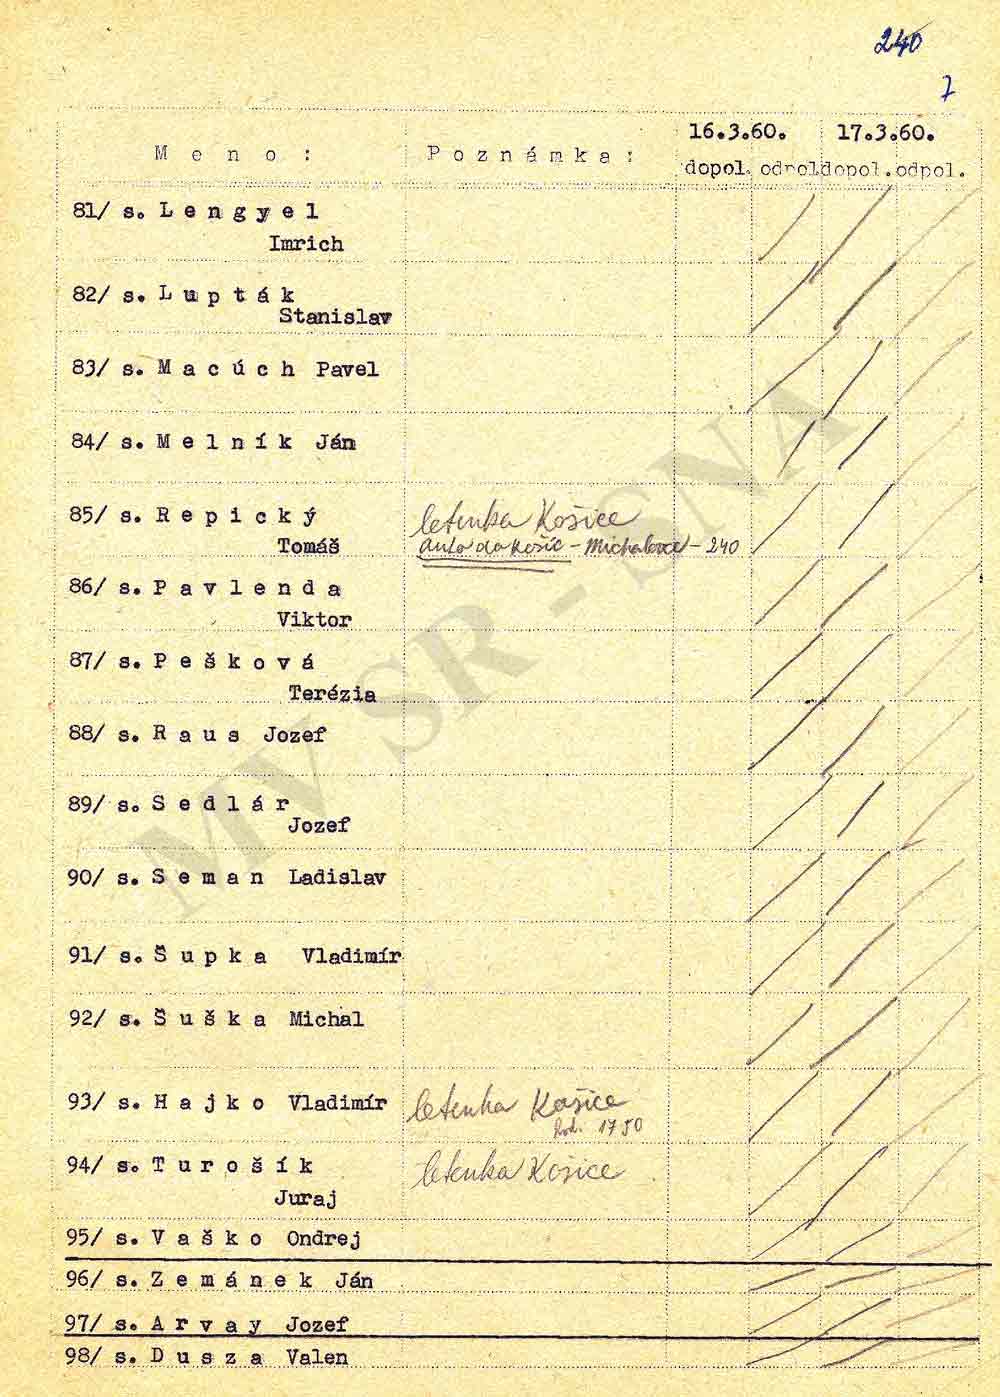 240
7
16.3.60. 17.3.60.
M e n o : P o z n á m k a : dopol. odpol dopol. odpol.
81/ s. L e n g y e l
Imrich
82/ s. L u p t á k
Stanislav
83/ s. M a c ú c h Pavel
84/ s. M e l n í k Ján
85/ s. R e p i c k ý letenka Košice
Tomáš auto do Košíc - Michalovce - 240
86/ s. P a v l e n d a
Viktor
87/ s. P e š k o v á
Terézia
88/ s. R a u s Jozef
89/ s. S e d l á r
Jozef
90/ s. S e m a n Ladislav
91/ s. Š u p k a Vladimír
92/ s. Š u š k a Michal
93/ s. H a j k o Vladimír letenka Košice
hod. 17 50
94/ s. T u r o š í k letenka Košice
Juraj
95/ s. V a š k o Ondrej
96/ s. Z e m á n e k Ján
97/ s. A r v a y Jozef
98/ s. D u s z a Valen
MV SR - SNA